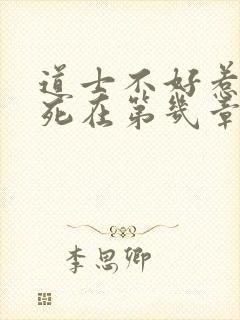 道士不好惹
死在第几章
李思卿